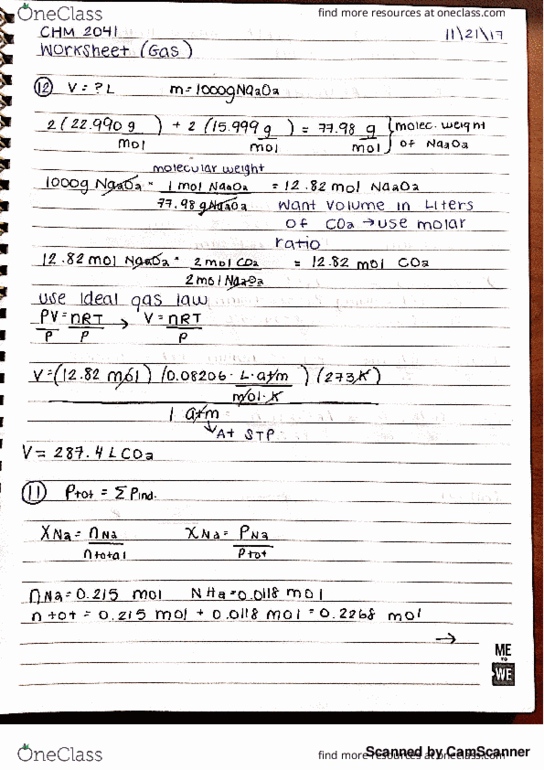 OneClass
find more resources at oneclass.com
CHM 2041
11|21|17
Worksheet (Gas)
12 V = ? L m = 1000g Na2O2
2(22.990 g) + 2(15.999 g) = 77.98 g molec. weight
mol mol mol of Na2O2
molecular weight
1000g Na2O2 · 1 mol Na2O2 = 12.82 mol Na2O2
77.98 g Na2O2 want volume in Liters
of CO2 → use molar
ratio
12.82 mol Na2O2 · 2 mol CO2 = 12.82 mol CO2
2 mol Na2O2
use Ideal gas law
PV = nRT → V = nRT
P P P
V = (12.82 mol) (0.08206 · L·atm) (273K)
mol·K
1 atm
↳ At STP
V = 287.4 L CO2
11 Ptot = Σ Pind.
XNa = nNa XNa = PNa
ntotal Ptot
nNa = 0.215 mol NHa = 0.0118 mol
n tot = 0.215 mol + 0.0118 mol = 0.2268 mol
→
ME
TO
WE
OneClass
find more resources at oneclass.com
Scanned by CamScanner